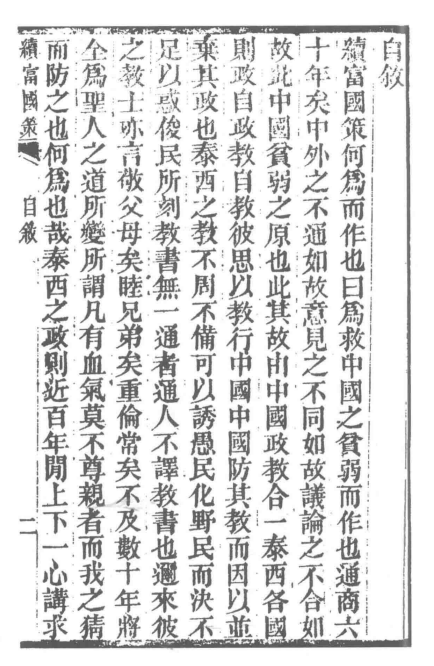 自敘
續富國策何爲而作也曰爲救中國之貧弱而作也通商六
十年矣中外之不通如故意見之不同如故議論之不合如
故此中國貧弱之原也此其故由中國政教合一泰西各國
則政自政教自教彼思以教行中國中國防其教而因以並
棄其政也泰西之教不周不備可以誘愚民化野民而決不
足以惑俊民所刻教書無一通者通人不譯教書也邇來彼
之教士亦言敬父母矣睦兄弟矣重倫常矣不及數十年將
全爲聖人之道所變所謂凡有血氣莫不尊親者而我之猜
而防之也何爲也哉泰西之政則近百年閒上下一心講求
續富國策
自敘
二